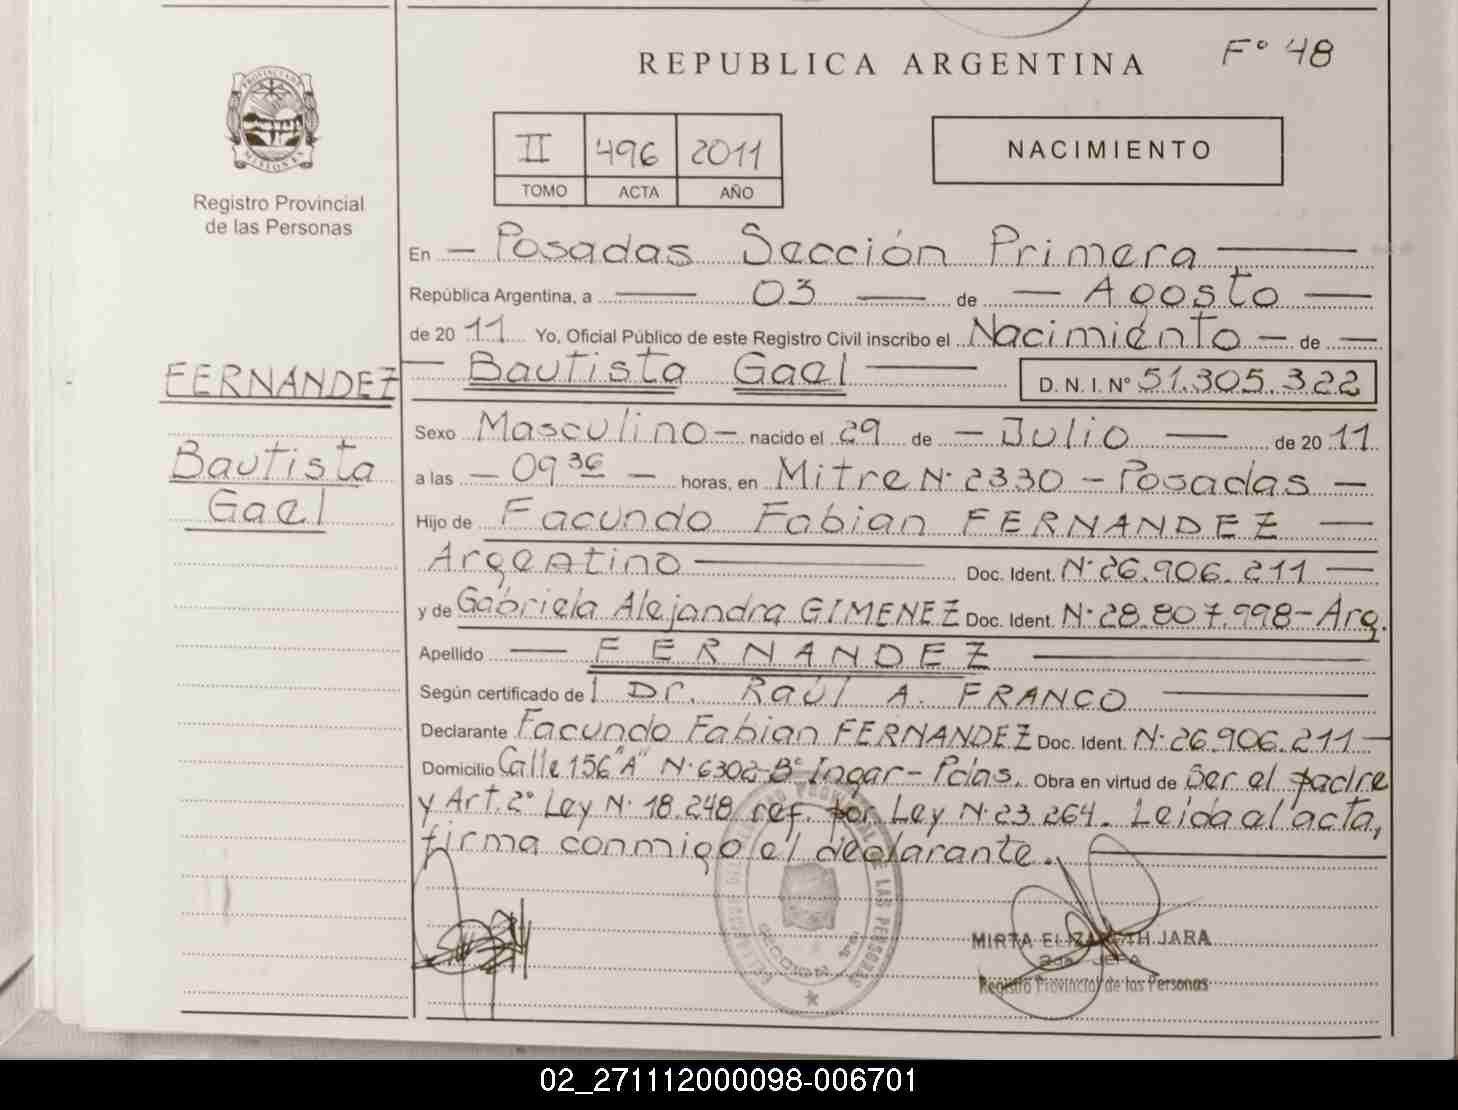 F° 48
REPUBLICA ARGENTINA
PROVINCIA DE
MISIONES
Registro Provincial
de las Personas
II 496 2011
TOMO ACTA AÑO
NACIMIENTO
En — Posadas Sección Primera —
República Argentina, a — 03 — de — Agosto —
de 20 11 Yo, Oficial Público de este Registro Civil inscribo el Nacimiento — de —
FERNANDEZ
Bautista
Gael
— Bautista Gael — D. N. I. N° 51.305.322
Sexo Masculino — nacido el 29 de — Julio — de 20 11
a las — 09 36 — horas, en Mitre N· 2330 — Posadas —
Hijo de Facundo Fabian FERNANDEZ —
Argentino — Doc. Ident. N· 26.906.211 —
y de Gabriela Alejandra GIMENEZ Doc. Ident. N· 28.807.998 — Arg.
Apellido — FERNANDEZ —
Según certificado de l Dr. Raúl A. FRANCO —
Declarante Facundo Fabian FERNANDEZ Doc. Ident. N· 26.906.211 —
Domicilio Calle 156 "A" N· 6302 B° Ingar — Pdas. Obra en virtud de Ser el padre
y Art. 2° Ley N· 18.248 ref. por Ley N· 23.264. Leida el acta,
firma conmigo el declarante. —
PROVINCIAL DE LAS PERSONAS
MIRTA ELIZABETH JARA
2da. JEFA
Registro Provincial de las Personas
02_271112000098-006701